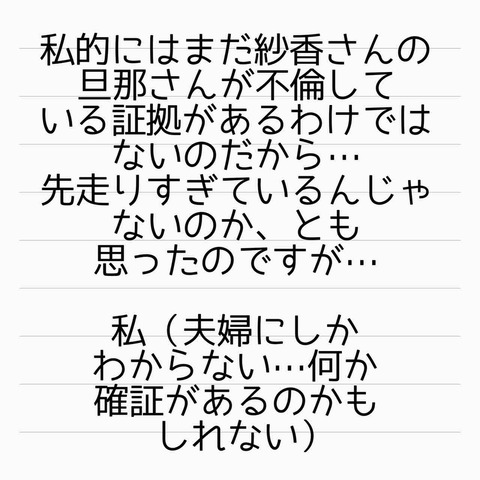 私的にはまだ紗香さんの
旦那さんが不倫して
いる証拠があるわけでは
ないのだから…
先走りすぎているんじゃ
ないのか、とも
思ったのですが…
私（夫婦にしか
わからない…何か
確証があるのかも
しれない）